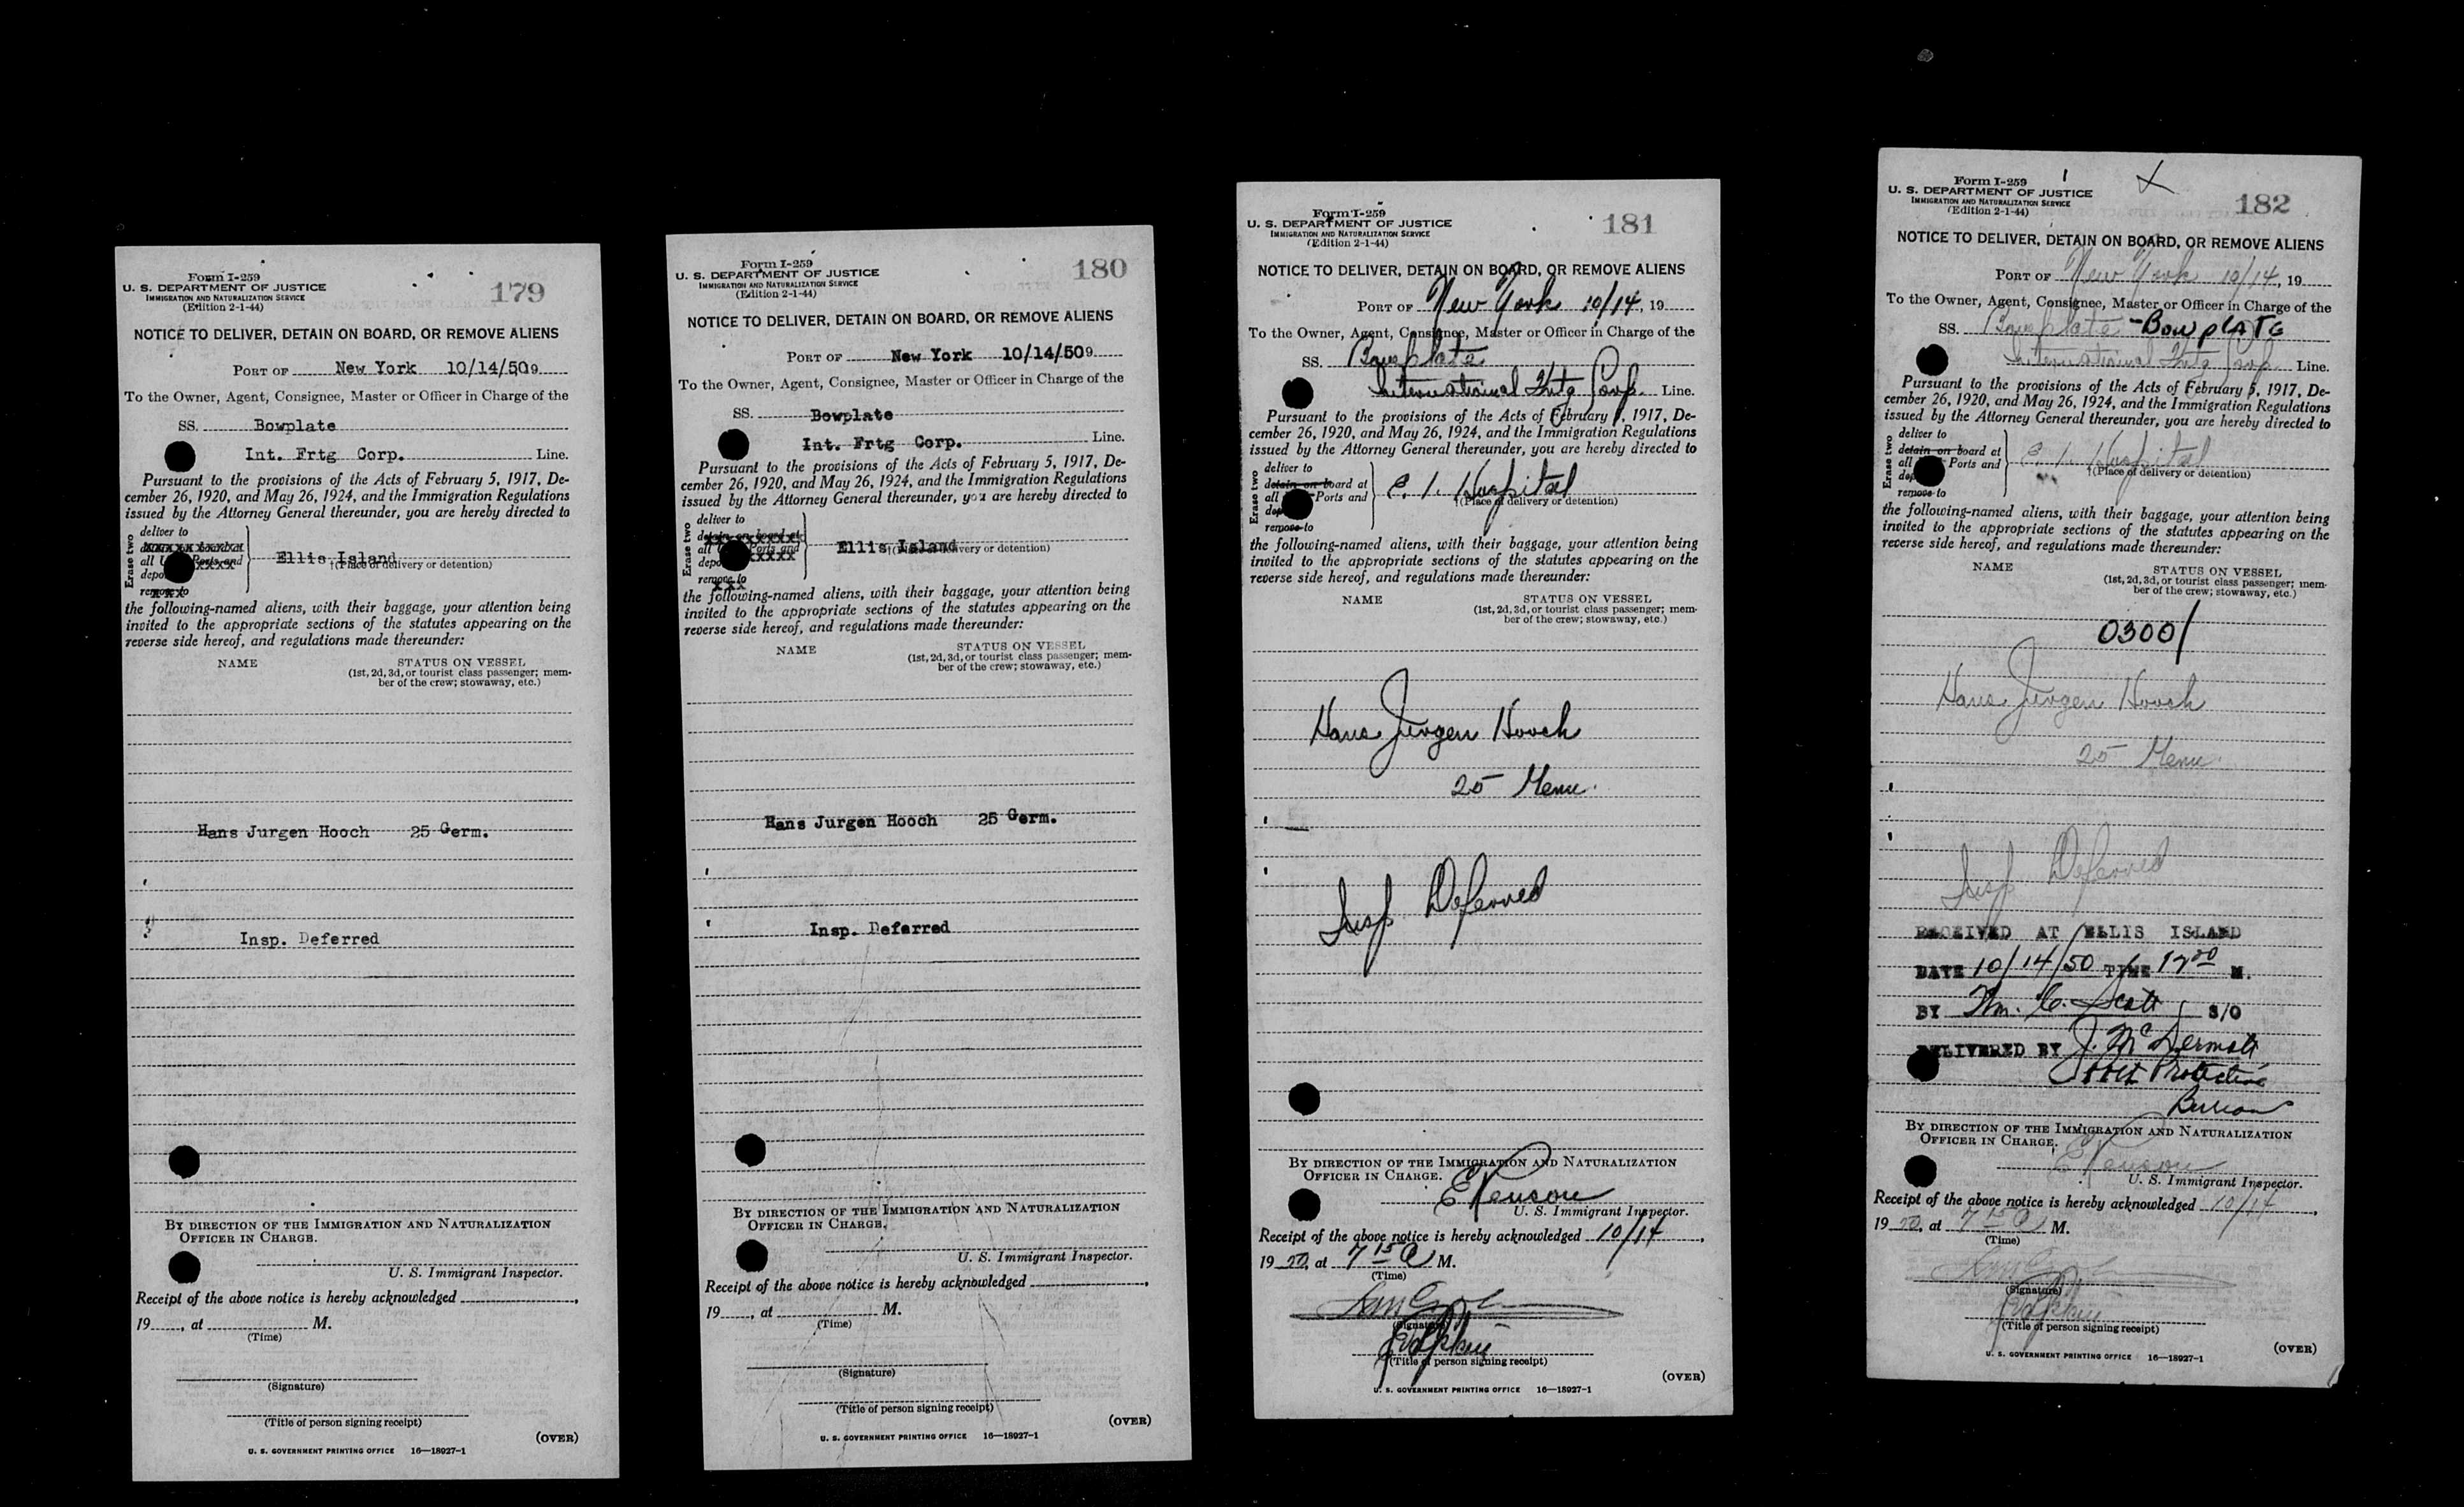 Form I-259
U. S. DEPARTMENT OF JUSTICE
IMMIGRATION AND NATURALIZATION SERVICE
(Edition 2-1-44)
179
NOTICE TO DELIVER, DETAIN ON BOARD, OR REMOVE ALIENS
PORT OF New York 10/14/509
To the Owner, Agent, Consignee, Master or Officer in Charge of the
SS. Bowplate
Int. Frtg Corp. Line.
Pursuant to the provisions of the Acts of February 5, 1917, De-
cember 26, 1920, and May 26, 1924, and the Immigration Regulations
issued by the Attorney General thereunder, you are hereby directed to
Erase two
deliver to
all U Ports and
depo
remove to
Ellis Island
†(Place of delivery or detention)
the following-named aliens, with their baggage, your attention being
invited to the appropriate sections of the statutes appearing on the
reverse side hereof, and regulations made thereunder:
NAME STATUS ON VESSEL
(1st, 2d, 3d, or tourist class passenger; mem-
ber of the crew; stowaway, etc.)
Hans Jurgen Hooch 25 Germ.
Insp. Deferred
BY DIRECTION OF THE IMMIGRATION AND NATURALIZATION
OFFICER IN CHARGE.
U. S. Immigrant Inspector.
Receipt of the above notice is hereby acknowledged
19 , at M.
(Time)
(Signature)
(Title of person signing receipt)
(OVER)
U. S. GOVERNMENT PRINTING OFFICE 16—18927-1
Form I-259
U. S. DEPARTMENT OF JUSTICE
IMMIGRATION AND NATURALIZATION SERVICE
(Edition 2-1-44)
180
NOTICE TO DELIVER, DETAIN ON BOARD, OR REMOVE ALIENS
PORT OF New York 10/14/509
To the Owner, Agent, Consignee, Master or Officer in Charge of the
SS. Bowplate
Int. Frtg Corp. Line.
Pursuant to the provisions of the Acts of February 5, 1917, De-
cember 26, 1920, and May 26, 1924, and the Immigration Regulations
issued by the Attorney General thereunder, you are hereby directed to
Erase two
deliver to
detain on board at
all Ports and
depo
remove to
Ellis Island
†(Place of delivery or detention)
the following-named aliens, with their baggage, your attention being
invited to the appropriate sections of the statutes appearing on the
reverse side hereof, and regulations made thereunder:
NAME STATUS ON VESSEL
(1st, 2d, 3d, or tourist class passenger; mem-
ber of the crew; stowaway, etc.)
Hans Jurgen Hooch 25 Germ.
Insp. Deferred
BY DIRECTION OF THE IMMIGRATION AND NATURALIZATION
OFFICER IN CHARGE.
U. S. Immigrant Inspector.
Receipt of the above notice is hereby acknowledged
19 , at M.
(Time)
(Signature)
(Title of person signing receipt)
(OVER)
U. S. GOVERNMENT PRINTING OFFICE 16—18927-1
Form I-259
U. S. DEPARTMENT OF JUSTICE
IMMIGRATION AND NATURALIZATION SERVICE
(Edition 2-1-44)
181
NOTICE TO DELIVER, DETAIN ON BOARD, OR REMOVE ALIENS
PORT OF New York 10/14, 19
To the Owner, Agent, Consignee, Master or Officer in Charge of the
SS. Bowplate
International Frtg Corp. Line.
Pursuant to the provisions of the Acts of February 5, 1917, De-
cember 26, 1920, and May 26, 1924, and the Immigration Regulations
issued by the Attorney General thereunder, you are hereby directed to
Erase two
deliver to
detain on board at
all Ports and
dep
remove to
E. I. Hospital
†(Place of delivery or detention)
the following-named aliens, with their baggage, your attention being
invited to the appropriate sections of the statutes appearing on the
reverse side hereof, and regulations made thereunder:
NAME STATUS ON VESSEL
(1st, 2d, 3d, or tourist class passenger; mem-
ber of the crew; stowaway, etc.)
Hans Jurgen Hooch
25 Germ.
Insp Deferred
BY DIRECTION OF THE IMMIGRATION AND NATURALIZATION
OFFICER IN CHARGE.
U. S. Immigrant Inspector.
Receipt of the above notice is hereby acknowledged 10/14,
19 50, at 7 15 A M.
(Time)
(Signature)
(Title of person signing receipt)
(OVER)
U. S. GOVERNMENT PRINTING OFFICE 16—18927-1
Form I-259
U. S. DEPARTMENT OF JUSTICE
IMMIGRATION AND NATURALIZATION SERVICE
(Edition 2-1-44)
X
182
NOTICE TO DELIVER, DETAIN ON BOARD, OR REMOVE ALIENS
PORT OF New York 10/14, 19
To the Owner, Agent, Consignee, Master or Officer in Charge of the
SS. Bowplate - BowplATe
International Frtg Corp. Line.
Pursuant to the provisions of the Acts of February 5, 1917, De-
cember 26, 1920, and May 26, 1924, and the Immigration Regulations
issued by the Attorney General thereunder, you are hereby directed to
Erase two
deliver to
detain on board at
all Ports and
dep
remove to
E. I. Hospital
†(Place of delivery or detention)
the following-named aliens, with their baggage, your attention being
invited to the appropriate sections of the statutes appearing on the
reverse side hereof, and regulations made thereunder:
NAME STATUS ON VESSEL
(1st, 2d, 3d, or tourist class passenger; mem-
ber of the crew; stowaway, etc.)
0300/
Hans Jurgen Hooch
25 Germ.
Insp Deferred
RECEIVED AT ELLIS ISLAND
DATE 10/14/50 TIME 12 00 M.
BY Wm. C. Scott S/O
DELIVERED BY J. McDermott
Protective
Bureau
BY DIRECTION OF THE IMMIGRATION AND NATURALIZATION
OFFICER IN CHARGE.
U. S. Immigrant Inspector.
Receipt of the above notice is hereby acknowledged 10/14,
19 50, at 7 15 A M.
(Time)
(Signature)
(Title of person signing receipt)
(OVER)
U. S. GOVERNMENT PRINTING OFFICE 16—18927-1